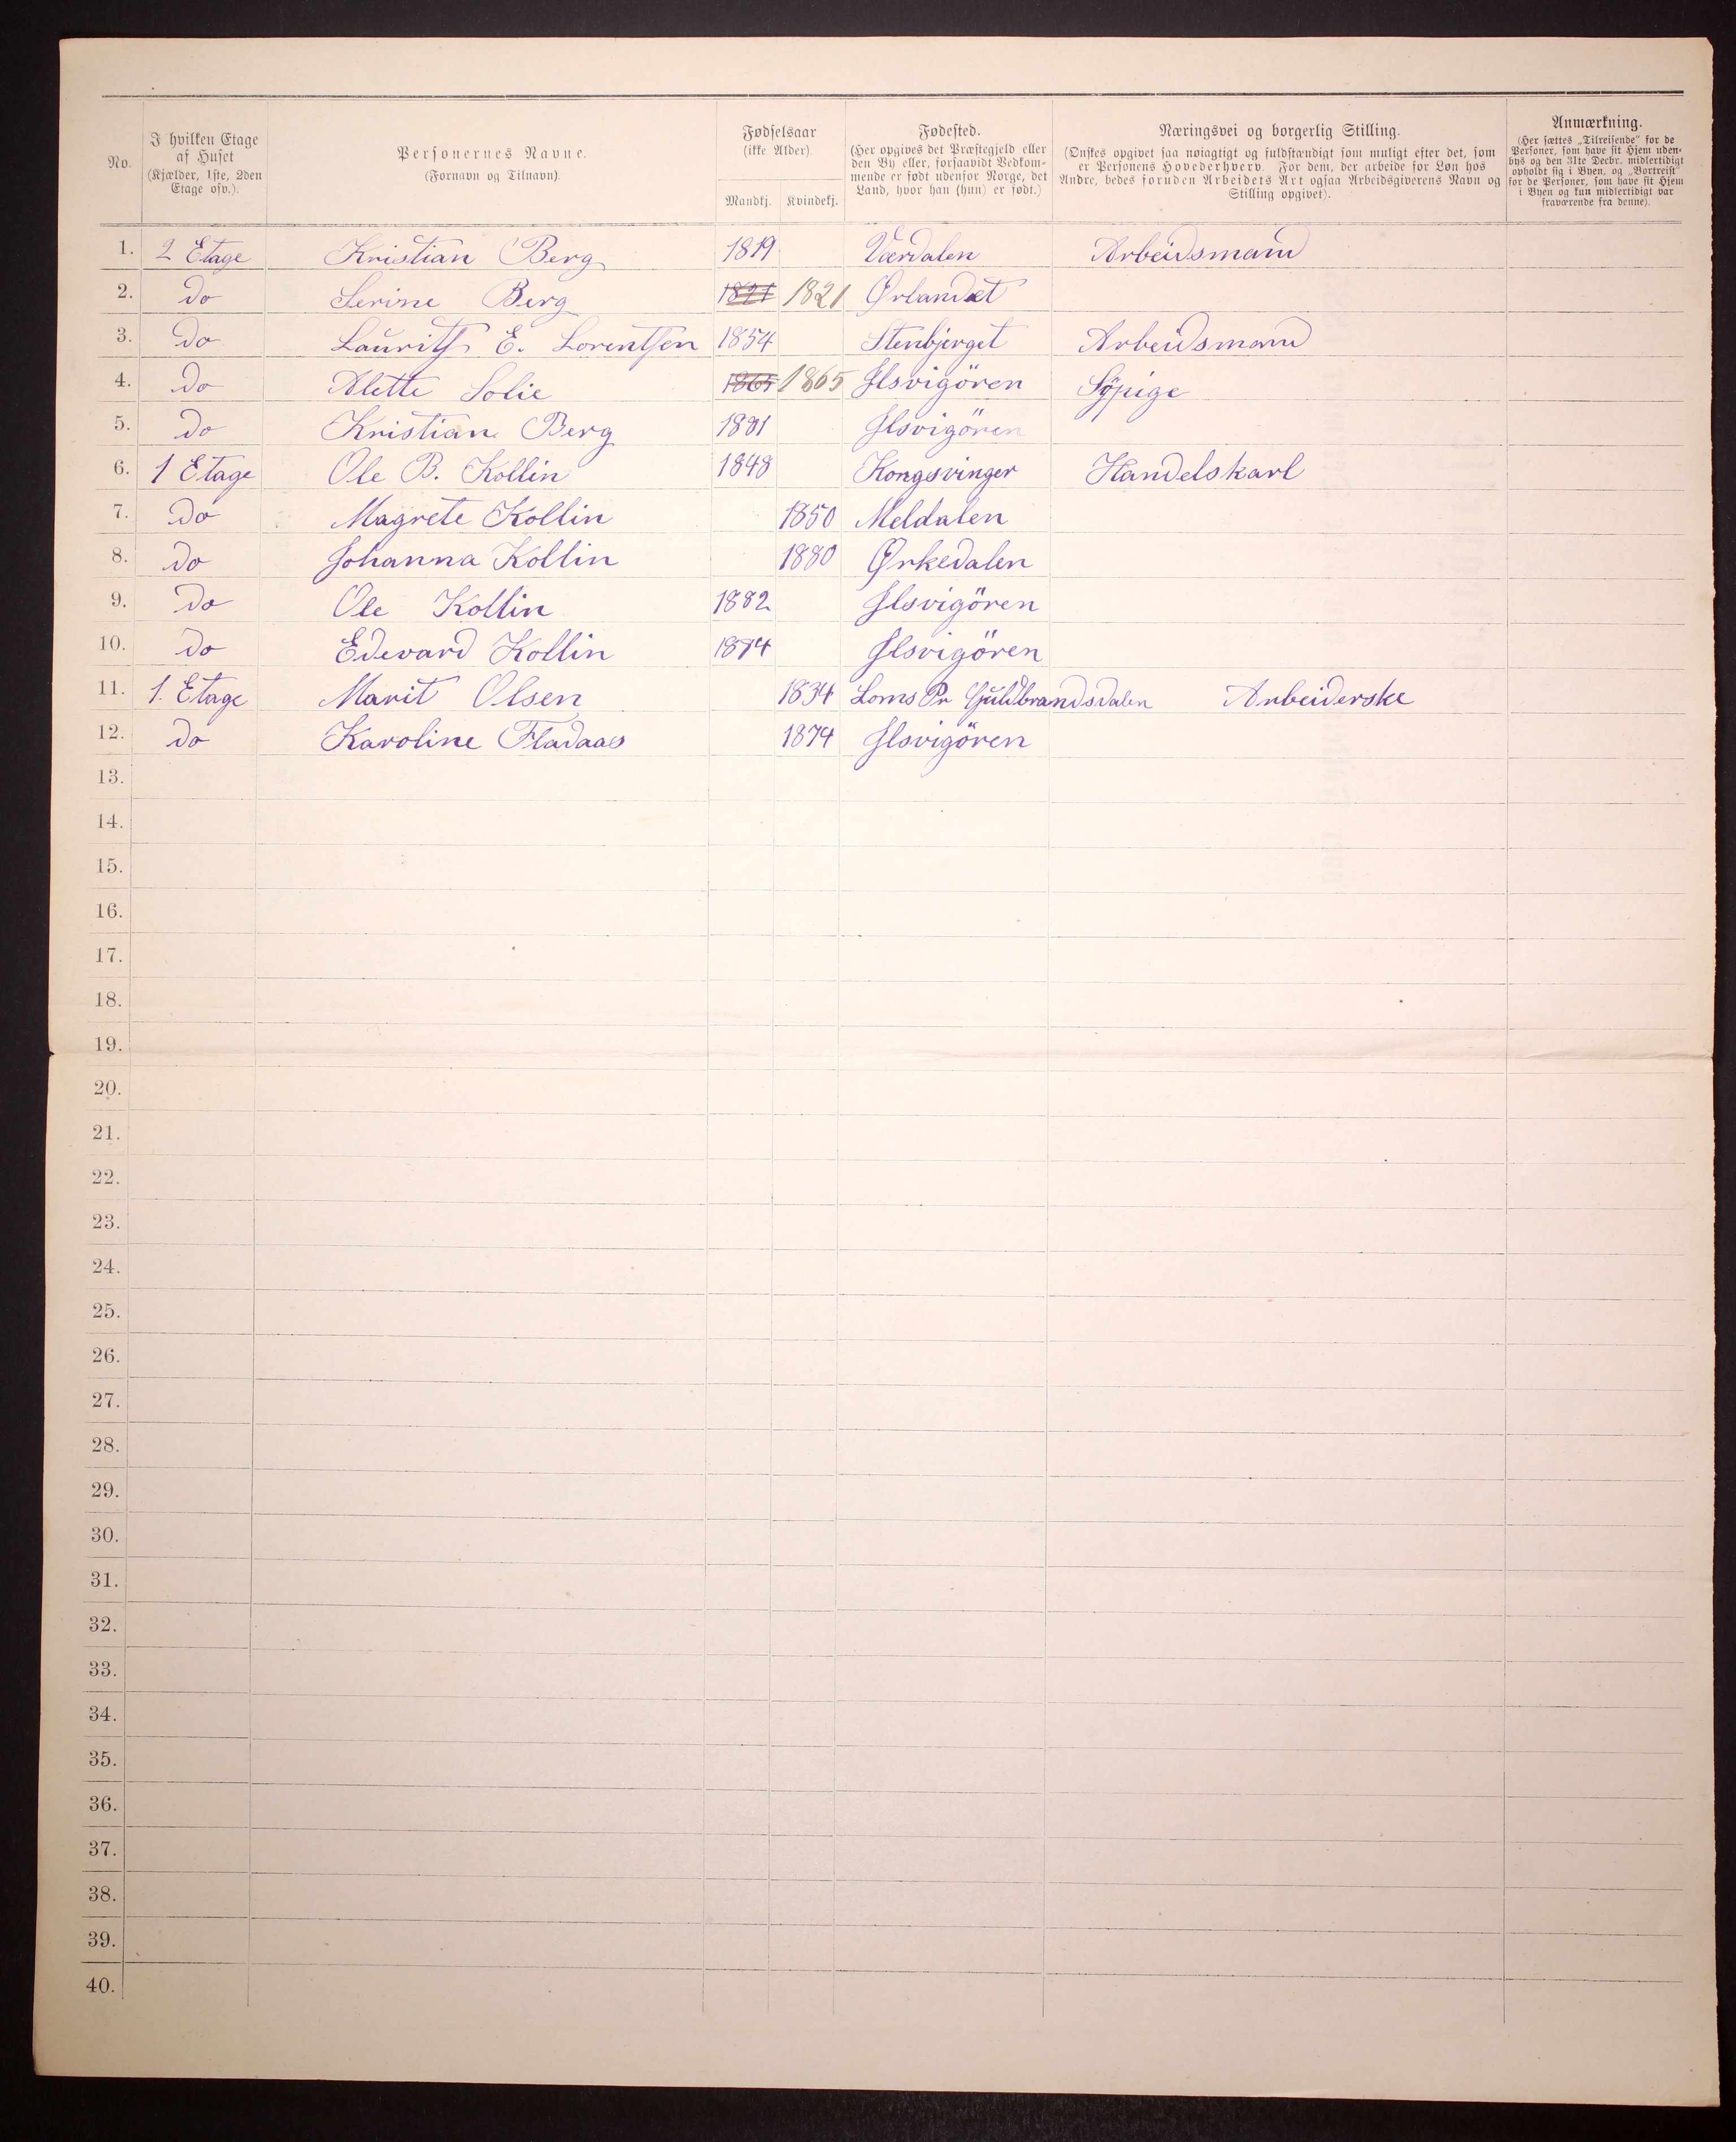 No.
I hvilken Etage
af Huset
(Kjælder, 1ste, 2den
Etage osv.).
Personernes Navne.
(Fornavn og Tilnavn).
Fødselsaar
(ikke Alder).
Mandkj. Kvindekj.
Fødested.
(Her opgives det Præstegjeld eller
den By eller, forsaavidt Vedkom-
mende er født udenfor Norge, det
Land, hvor han (hun) er født.)
Næringsvei og borgerlig Stilling.
(Ønskes opgivet saa nøiagtigt og fuldstændigt som muligt efter det, som
er Personens Hovederhverv. For dem, der arbeide for Løn hos
Andre, bedes foruden Arbeidets Art ogsaa Arbeidsgiverens Navn og
Stilling opgivet).
Anmærkning.
(Her sættes „Tilreisende" for de
Personer, som have sit Hjem uden-
bys og den 31te Decbr. midlertidigt
opholdt sig i Byen, og „Bortreist"
for de Personer, som have sit Hjem
i Byen og kun midlertidigt var
fraværende fra denne).
1. 2 Etage Kristian Berg 1819 Værdalen Arbeidsmand
2. do Serine Berg 1821 1821 Ørlandet
3. do Laurits E. Lorentsen 1854 Stenbjerget Arbeidsmand
4. do Alette Solie 1865 1865 Ilsvigören Sÿpige
5. do Kristian Berg 1881 Ilsvigören
6. 1 Etage Ole B. Kollin 1848 Kongsvinger Handelskarl
7. do Magrete Kollin 1850 Meldalen
8. do Johanna Kollin 1880 Ørkedalen
9. do Ole Kollin 1882 Ilsvigören
10. do Edevard Kollin 1874 Ilsvigören
11. 1. Etage Marit Olsen 1834 Loms Pr Guldbrandsdalen Arbeiderske
12. do Karoline Fladaas 1874 Ilsvigören
13.
14.
15.
16.
17.
18.
19.
20.
21.
22.
23.
24.
25.
26.
27.
28.
29.
30.
31.
32.
33.
34.
35.
36.
37.
38.
39.
40.